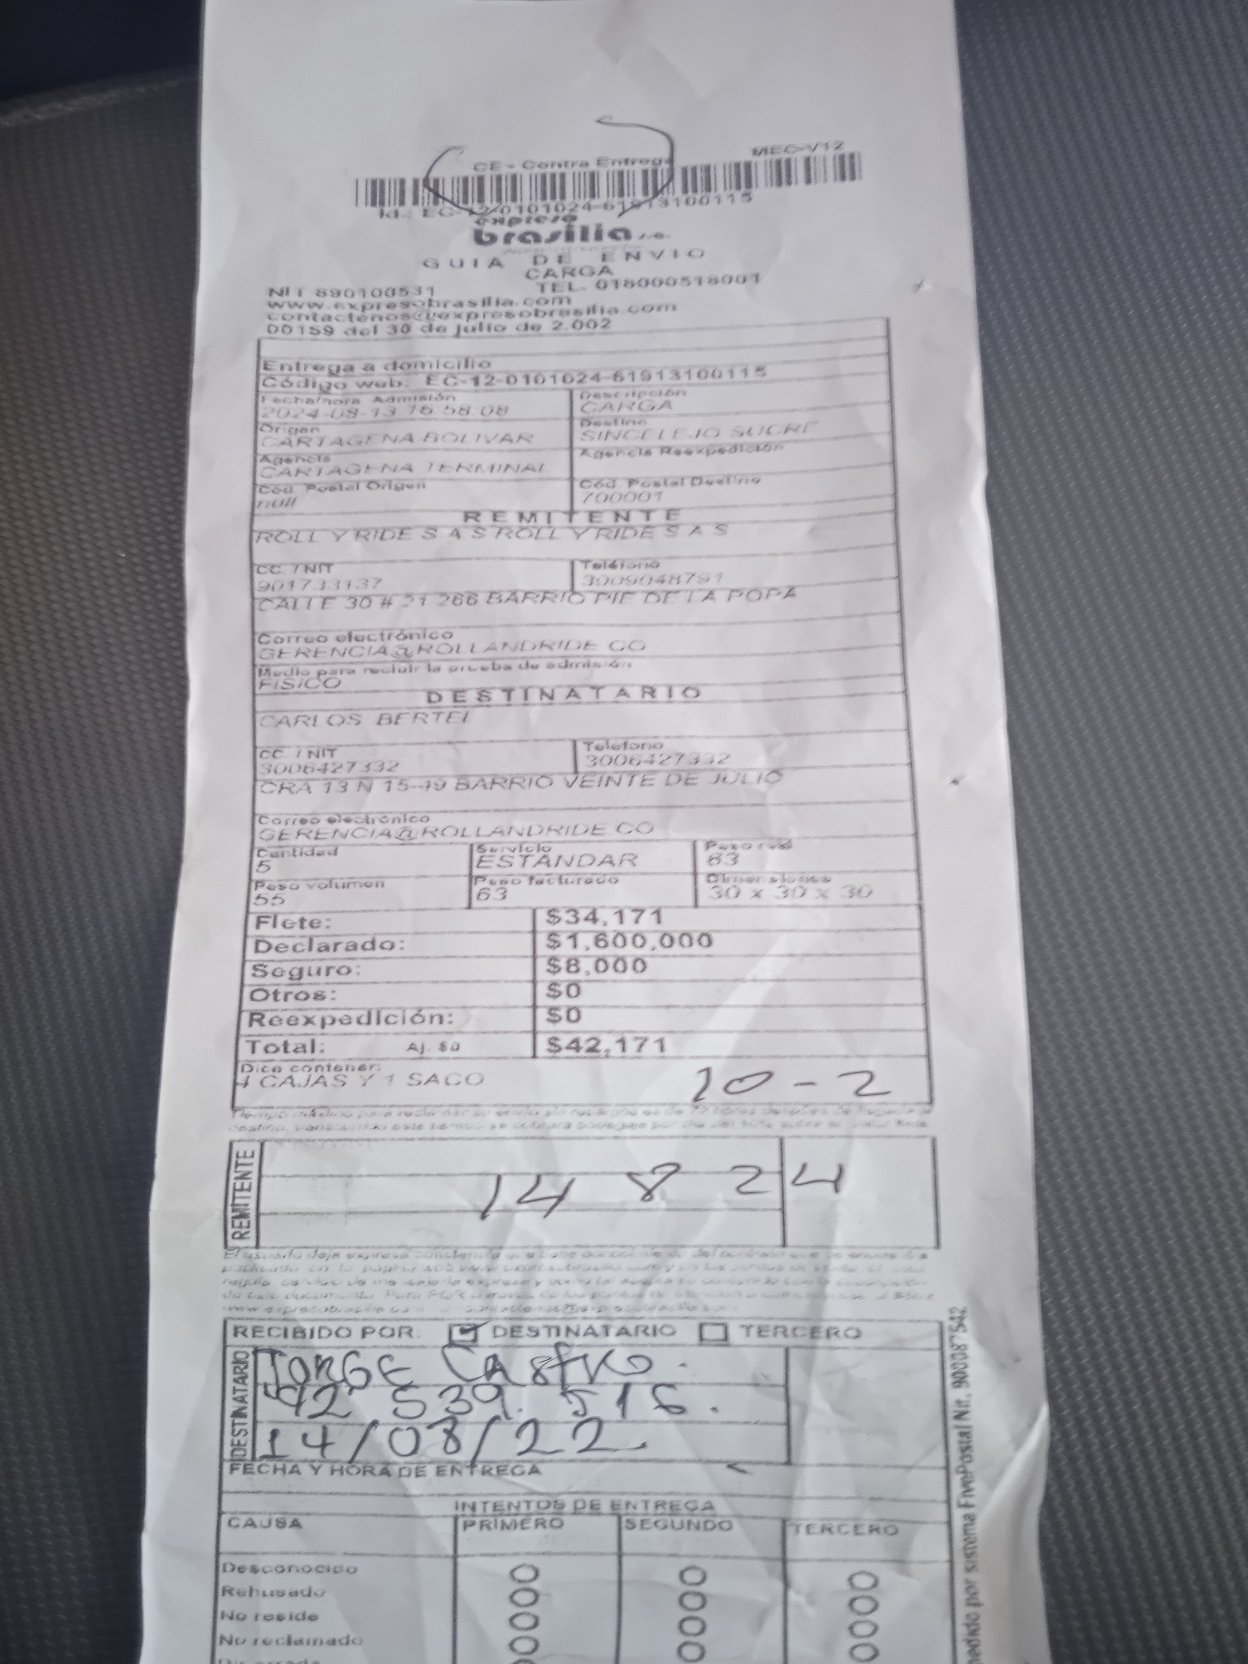 CE - Contra Entrega
MEC-V12
Id.: EC-12-0101024-61913100115
expreso
brasilia s.a.
GUIA DE ENVIO
CARGA
NIT 890100531 TEL. 018000518001
www.expresobrasilia.com
contactenos@expresobrasilia.com
00159 del 30 de julio de 2.002
Entrega a domicilio
Código web: EC-12-0101024-61913100115
Fecha/hora Admisión Descripción
2024-08-13 16:58:08 CARGA
Origen Destino
CARTAGENA BOLIVAR SINCELEJO SUCRE
Agencia Agencia Reexpedición
CARTAGENA TERMINAL
Cod. Postal Origen Cód. Postal Destino
null 700001
REMITENTE
ROLL Y RIDE S A S ROLL Y RIDE S A S
CC. / NIT Teléfono
901733137 3009048791
CALLE 30 # 21 266 BARRIO PIE DE LA POPA
Correo electrónico
GERENCIA@ROLLANDRIDE.CO
Medio para recibir la prueba de admisión
FISICO
DESTINATARIO
CARLOS BERTEL
CC. / NIT Telefono
3006427332 3006427332
CRA 13 N 15-49 BARRIO VEINTE DE JULIO
Correo electrónico
GERENCIA@ROLLANDRIDE.CO
Cantidad Servicio Peso real
5 ESTANDAR 63
Peso volumen Peso facturado Dimensiones
55 63 30 x 30 x 30
Flete: $34,171
Declarado: $1,600,000
Seguro: $8,000
Otros: $0
Reexpedición: $0
Total: Aj. $0 $42,171
Dice contener:
4 CAJAS Y 1 SACO
10-2
REMITENTE
14 8 24
RECIBIDO POR: DESTINATARIO TERCERO
DESTINATARIO
JORGE CASTRO.
92 539. 516.
14/08/22.
FECHA Y HORA DE ENTREGA
INTENTOS DE ENTREGA
CAUSA PRIMERO SEGUNDO TERCERO
Desconocido
Rehusado
No reside
No reclamado